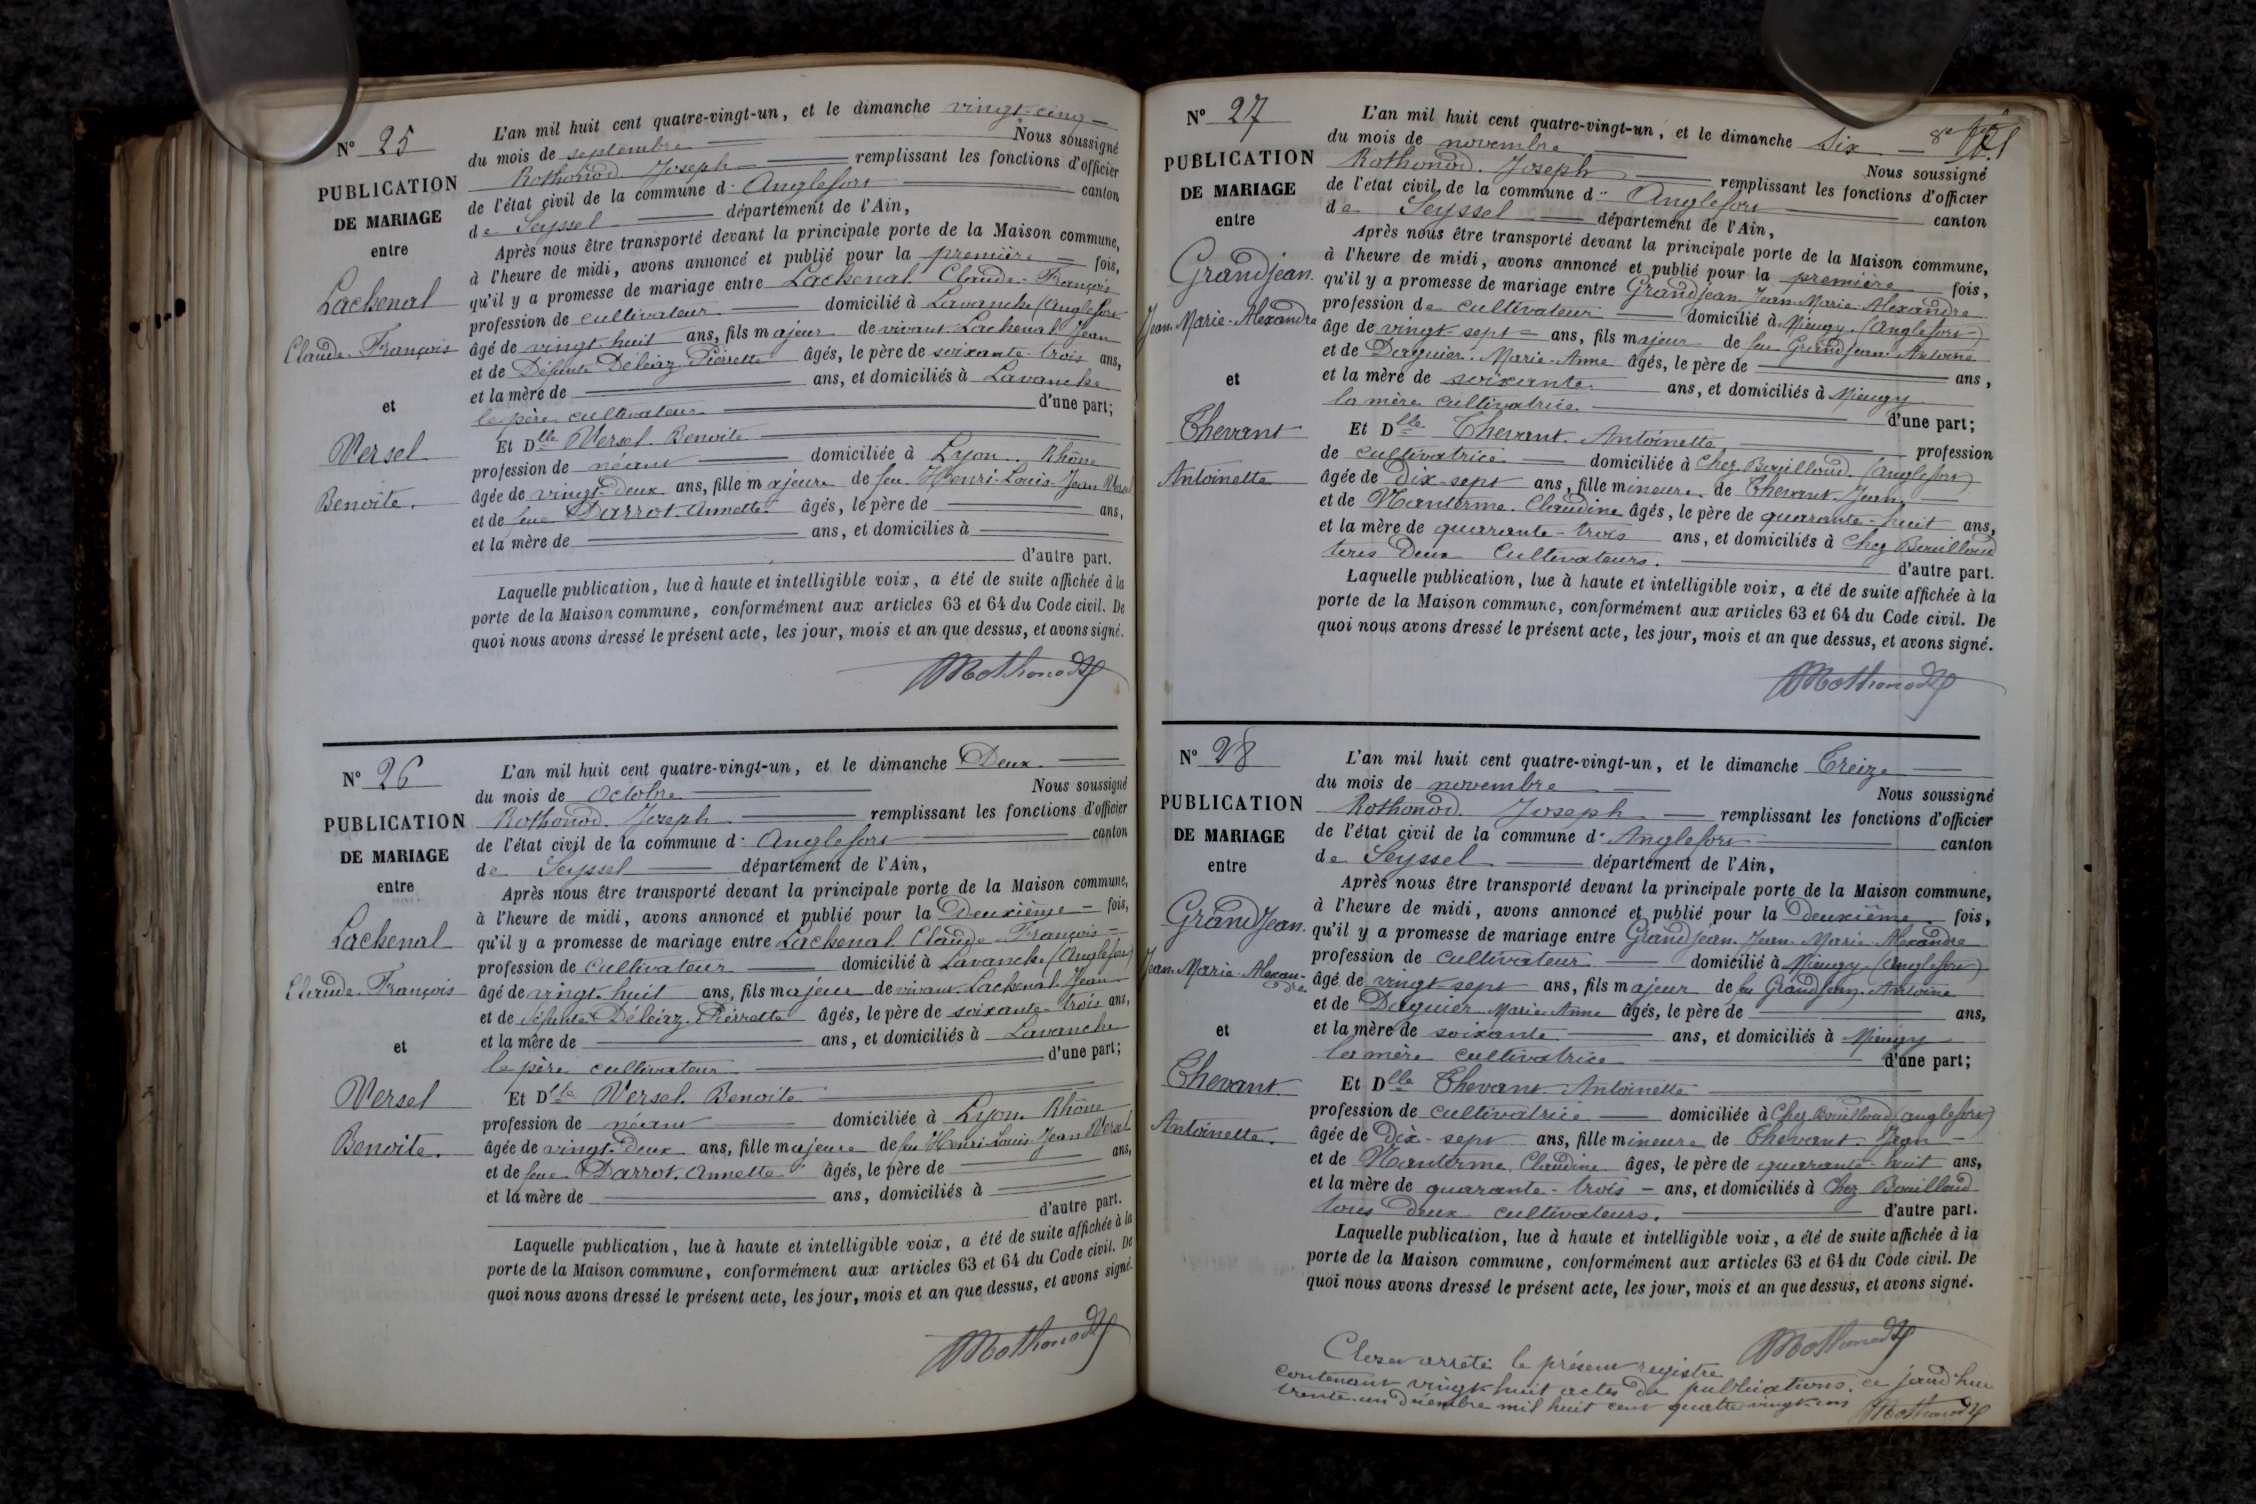 N° 25
PUBLICATION
DE MARIAGE
entre
Lachenal
Claude-François
et
Versel
Benoite.
L'an mil huit cent quatre-vingt-un, et le dimanche vingt-cinq
du mois de septembre Nous soussigné
Rothonod Joseph remplissant les fonctions d'officier
de l'état civil de la commune d' Anglefort canton
de Seyssel département de l'Ain,
Après nous être transporté devant la principale porte de la Maison commune,
à l'heure de midi, avons annoncé et publié pour la première fois,
qu'il y a promesse de mariage entre Lachenal Claude-François
profession de cultivateur domicilié à Lavanche (Anglefort
âgé de vingt huit ans, fils majeur de vivant Lachenal Jean
et de Défunte Déléaz Pierrette âgés, le père de soixante-trois ans,
et la mère de ans, et domiciliés à Lavanche
le père cultivateur d'une part;
Et Dlle Versel Benoite
profession de néant domiciliée à Lyon. Rhône
âgée de vingt-deux ans, fille majeure de feu Henri-Louis-Jean Versel
et de feue Darrot Annette âgés, le père de ans,
et la mère de ans, et domiciliés à
d'autre part.
Laquelle publication, lue à haute et intelligible voix, a été de suite affichée à la
porte de la Maison commune, conformément aux articles 63 et 64 du Code civil. De
quoi nous avons dressé le présent acte, les jour, mois et an que dessus, et avons signé.
Rothonod
N° 26
PUBLICATION
DE MARIAGE
entre
Lachenal
Claude-François
et
Versel
Benoite.
L'an mil huit cent quatre-vingt-un, et le dimanche Deux
du mois de Octobre Nous soussigné
Rothonod Joseph remplissant les fonctions d'officier
de l'état civil de la commune d' Anglefort canton
de Seyssel département de l'Ain,
Après nous être transporté devant la principale porte de la Maison commune,
à l'heure de midi, avons annoncé et publié pour la Deuxième fois,
qu'il y a promesse de mariage entre Lachenal Claude-François
profession de Cultivateur domicilié à Lavanche (Anglefort)
âgé de vingt-huit ans, fils majeur de vivant Lachenal Jean
et de défunte Déléaz Pierrette âgés, le père de soixante trois ans,
et la mère de ans, et domiciliés à Lavanche
le père cultivateur d'une part;
Et Dlle Versel Benoite
profession de néant domiciliée à Lyon. Rhône
âgée de vingt-deux ans, fille majeure de feu Henri-Louis-Jean Versel
et de feue Darrot Annette âgés, le père de ans,
et la mère de ans, domiciliés à
d'autre part.
Laquelle publication, lue à haute et intelligible voix, a été de suite affichée à la
porte de la Maison commune, conformément aux articles 63 et 64 du Code civil. De
quoi nous avons dressé le présent acte, les jour, mois et an que dessus, et avons signé.
Rothonod
N° 27
PUBLICATION
DE MARIAGE
entre
Grandjean
Jean-Marie-Alexandre
et
Chevant
Antoinette
L'an mil huit cent quatre-vingt-un, et le dimanche Six
8e
du mois de novembre Nous soussigné
Rothonod Joseph remplissant les fonctions d'officier
de l'état civil de la commune d' Anglefort canton
de Seyssel département de l'Ain,
Après nous être transporté devant la principale porte de la Maison commune,
à l'heure de midi, avons annoncé et publié pour la première fois,
qu'il y a promesse de mariage entre Grandjean Jean-Marie-Alexandre
profession de cultivateur domicilié à Mieugy (Anglefort)
âgé de vingt sept ans, fils majeur de feu Grandjean Antoine
et de Daguier Marie-Anne âgés, le père de ans,
et la mère de soixante ans, et domiciliés à Mieugy
la mère cultivatrice d'une part;
Et Dlle Chevant Antoinette profession
de cultivatrice domiciliée à Chez Bouilloud (Anglefort)
âgée de Dix-sept ans, fille mineure de Chevant Jean
et de Nanterme Claudine âgés, le père de quarante-huit ans,
et la mère de quarante-trois ans, et domiciliés à Chez Bouilloud
tous deux Cultivateurs. d'autre part.
Laquelle publication, lue à haute et intelligible voix, a été de suite affichée à la
porte de la Maison commune, conformément aux articles 63 et 64 du Code civil. De
quoi nous avons dressé le présent acte, les jour, mois et an que dessus, et avons signé.
Rothonod
N° 28
PUBLICATION
DE MARIAGE
entre
Grandjean
Jean-Marie-Alexan-
dre
et
Chevant
Antoinette.
L'an mil huit cent quatre-vingt-un, et le dimanche Treize
du mois de novembre Nous soussigné
Rothonod Joseph remplissant les fonctions d'officier
de l'état civil de la commune d' Anglefort canton
de Seyssel département de l'Ain,
Après nous être transporté devant la principale porte de la Maison commune,
à l'heure de midi, avons annoncé et publié pour la Deuxième fois,
qu'il y a promesse de mariage entre Grandjean Jean Marie Alexandre
profession de cultivateur domicilié à Mieugy (Anglefort)
âgé de vingt sept ans, fils majeur de feu Grandjean Antoine
et de Daguier Marie Anne âgés, le père de ans,
et la mère de soixante ans, et domiciliés à Mieugy
la mère cultivatrice d'une part;
Et Dlle Chevant Antoinette
profession de cultivatrice domiciliée à Chez Bouilloud (Anglefort)
âgée de Dix-sept ans, fille mineure de Chevant Jean
et de Nanterme Claudine âges, le père de quarante-huit ans,
et la mère de quarante-trois ans, et domiciliés à Chez Bouilloud
tous deux cultivateurs. d'autre part.
Laquelle publication, lue à haute et intelligible voix, a été de suite affichée à la
porte de la Maison commune, conformément aux articles 63 et 64 du Code civil. De
quoi nous avons dressé le présent acte, les jour, mois et an que dessus, et avons signé.
Rothonod
Clos et arrêté le présent registre
contenant vingt huit actes de publications, ce jourd'hui
trente-un décembre mil huit cent quatre vingt-un
Rothonod